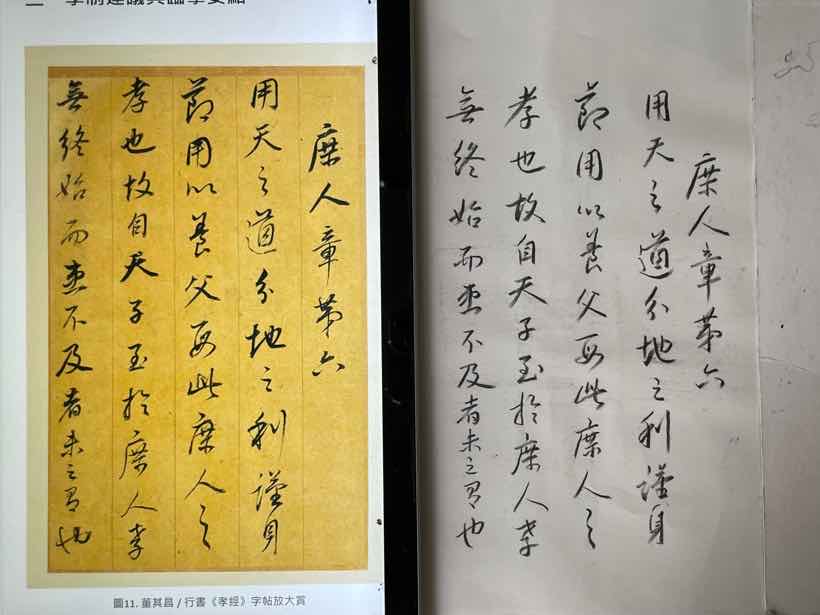 二、學制建議與臨學要點
庶人章第六
用天之道分地之利謹身
節用以養父母此庶人之
孝也故自天子至於庶人孝
無終始而患不及者未之有也
圖11. 董其昌 / 行書《孝經》字帖放大賞
庶人章第六
用天之道分地之利謹身
節用以養父母此庶人之
孝也故自天子至於庶人孝
無終始而患不及者未之有也